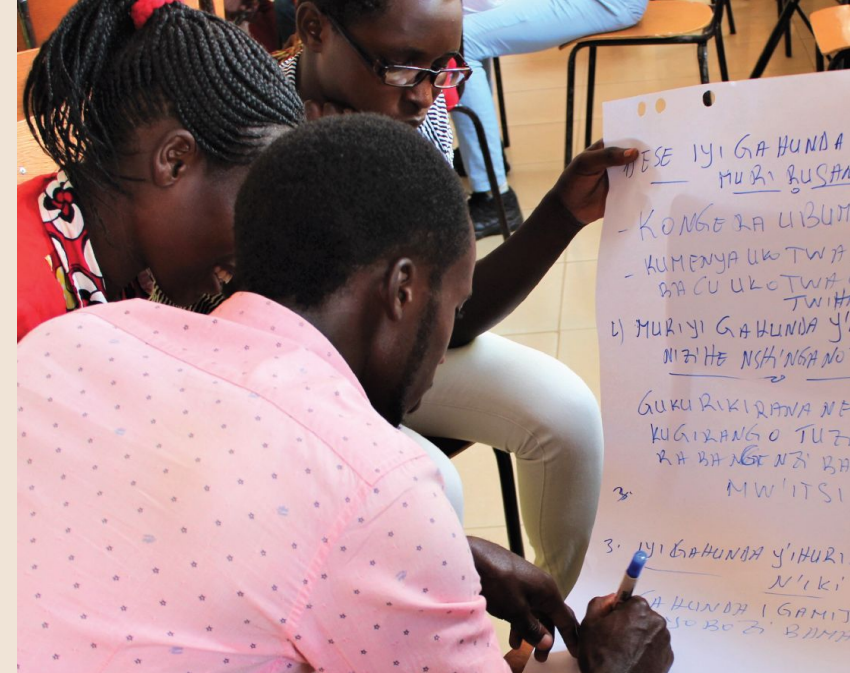 ESE IYI GAHUNDA
MURI BUSAN
- KONGERA UBUM
- KUMENYA UKO TWA
BACU UKO TWA
TWIH
MURIYI GAHUNDA Y'
NIZIHE NSHINGANO
GUKURIKIRANA NE
KUGIRANGO TUZ
RA BAGENZI BA
MW'ITSI
3.
3. IYI GAHUNDA Y'IHURI
N'IKI
GAHUNDA IGAMI
BAMA